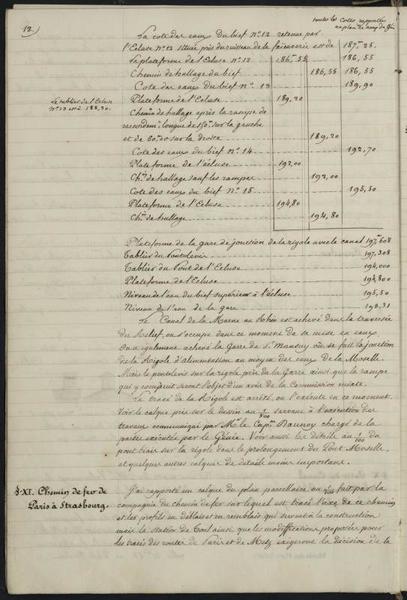 12.
toutes les Cotes rapportées
au plan de comp. du Génie
La cote des eaux du bief n.º 12 retenue par
l'Ecluse n.º 12 située près du ruisseau de la faïencerie est de 187,25.
La plateforme de l'Ecluse n.º 12 186,55 186,55
Chemin de hallage du bief 186,55 186,55
Cote des eaux du bief n.º 13 189,90
Le tablier de l'Ecluse
n.º 13 est 188,30.
Plateforme de l'Ecluse 189,20
Chemin de hallage après la rampe de
raccordem.t longue de 150.m sur la gauche
et de sur la droite 189,20
Cote des eaux du bief n.º 14 192,70
Plateforme de l'écluse 192,00
Ch.in de hallage sauf les rampes 192,00
Cote des eaux du bief n.º 15 195,50
Plateforme de l'Ecluse 194,80
Ch.in de hallage 194,80
Plateforme de la gare de jonction de la rigole avec le canal 197,m 608
Tablier du Pontlevis 197,308
Tablier du Pont de l'Ecluse 194,000
Plateforme de l'Ecluse 194,800
Niveau de l'eau du bief supérieur à l'écluse 195,50
Niveau de l'eau de la gare
Le Canal de la Marne au Rhin est achevé dans la traversée
du Relief, on s'occupe dans ce moment de sa mise en eaux.
On a également achevé la Gare de S.t Mansuy où se fait la jonction
de la Rigole d'alimentation au moyen des eaux de la Moselle.
Mais le pontlevis sur la rigole près de la Gare ainsi que la rampe
qui y conduit seront l'objet d'un avis de la Commission mixte.
Le tracé de la Rigole est arrêté, on l'exécute en ce moment.
Voir le calque pris sur le dessin au servant à l'exécution des
travaux communiqué par M.r le Cap.ne chargé de la
partie exécutée par le Génie. Voir aussi les détails au du
pont biais sur la rigole dans le prolongement du Pont Moselle,
et quelques autres calques de détails moins importans.
§ XI. Chemin de fer de
Paris à Strasbourg.
J'ai rapporté un calque du plan parcellaire au fait par la
compagnie du chemin de fer sur lequel est tracé l'axe de ce chemin
et les profils en déblais et en remblais qui servent à la construction
mais la station de Toul ainsi que les modifications proposées pour
les tracés des routes de Paris et de Metz exigeront la décision de la